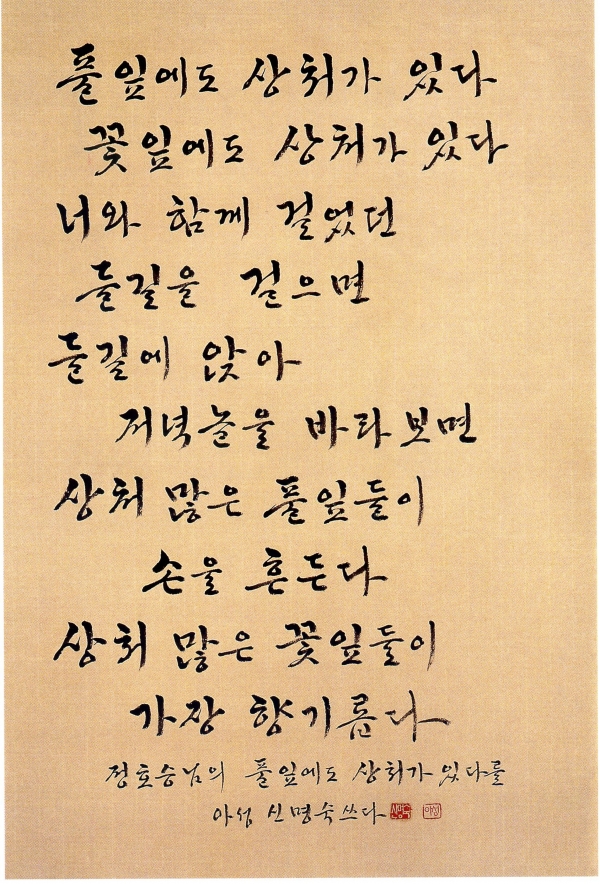 풀잎에도 상처가 있다
꽃잎에도 상처가 있다
너와 함께 걸었던
들길을 걸으면
들길에 앉아
저녁놀을 바라보면
상처 많은 풀잎들이
손을 흔든다
상처 많은 꽃잎들이
가장 향기롭다
정호승님의 풀잎에도 상처가 있다를
아성 신명숙 쓰다 신명숙 아성